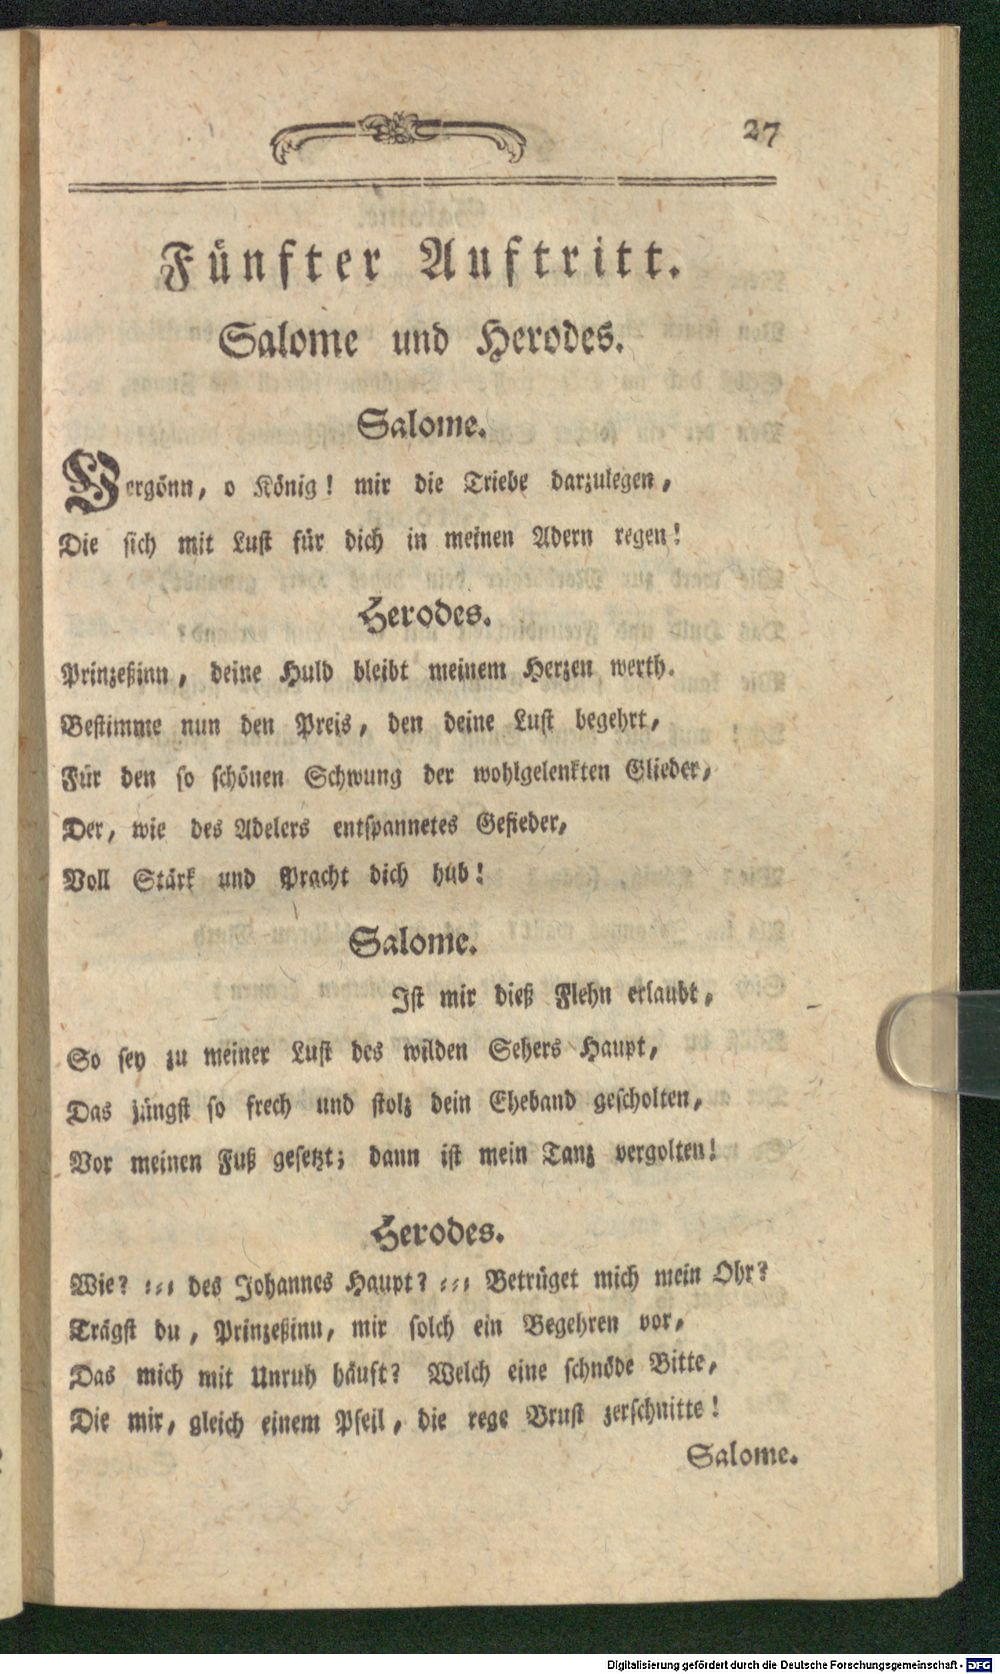 27
Fünfter Auftritt.
Salome und Herodes.
Salome.
Vergönn, o König! mir die Triebe darzulegen,
Die sich mit Lust für dich in meinen Adern regen!
Herodes.
Prinzeßinn, deine Huld bleibt meinem Herzen werth.
Bestimme nun den Preis, den deine Lust begehrt,
Für den so schönen Schwung der wohlgelenkten Glieder,
Der, wie des Adelers entspannetes Gefieder,
Voll Stärk und Pracht dich hub!
Salome.
Ist mir dieß Flehn erlaubt,
So sey zu meiner Lust des wilden Sehers Haupt,
Das jüngst so frech und stolz dein Eheband gescholten,
Vor meinen Fuß gesetzt; dann ist mein Tanz vergolten!
Herodes.
Wie? ⸗⸗⸗ des Johannes Haupt? ⸗⸗⸗ Betrüget mich mein Ohr?
Trägst du, Prinzeßinn, mir solch ein Begehren vor,
Das mich mit Unruh häuft? Welch eine schnöde Bitte,
Die mir, gleich einem Pfeil, die rege Brust zerschnitte!
Salome.
Digitalisierung gefördert durch die Deutsche Forschungsgemeinschaft - DFG